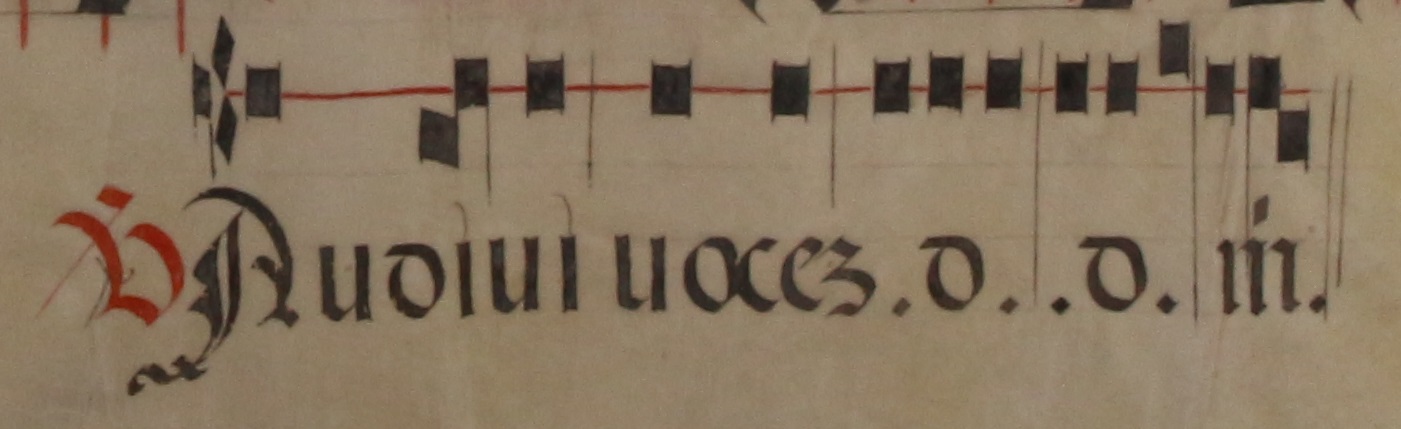 ℣ Audiui uocez .d. .d. m̄.